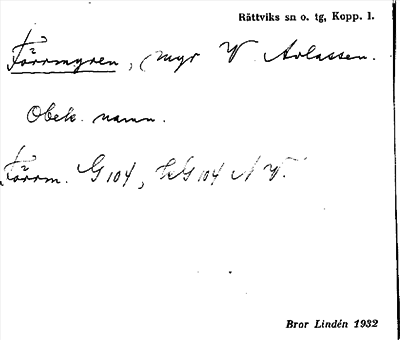 Rättviks sn o. tg, Kopp. l.
Torrmyren, myr V. Avlassen.
Obek. namn.
Torrm. G 104, KG 104 N V.
Bror Lindén 1932